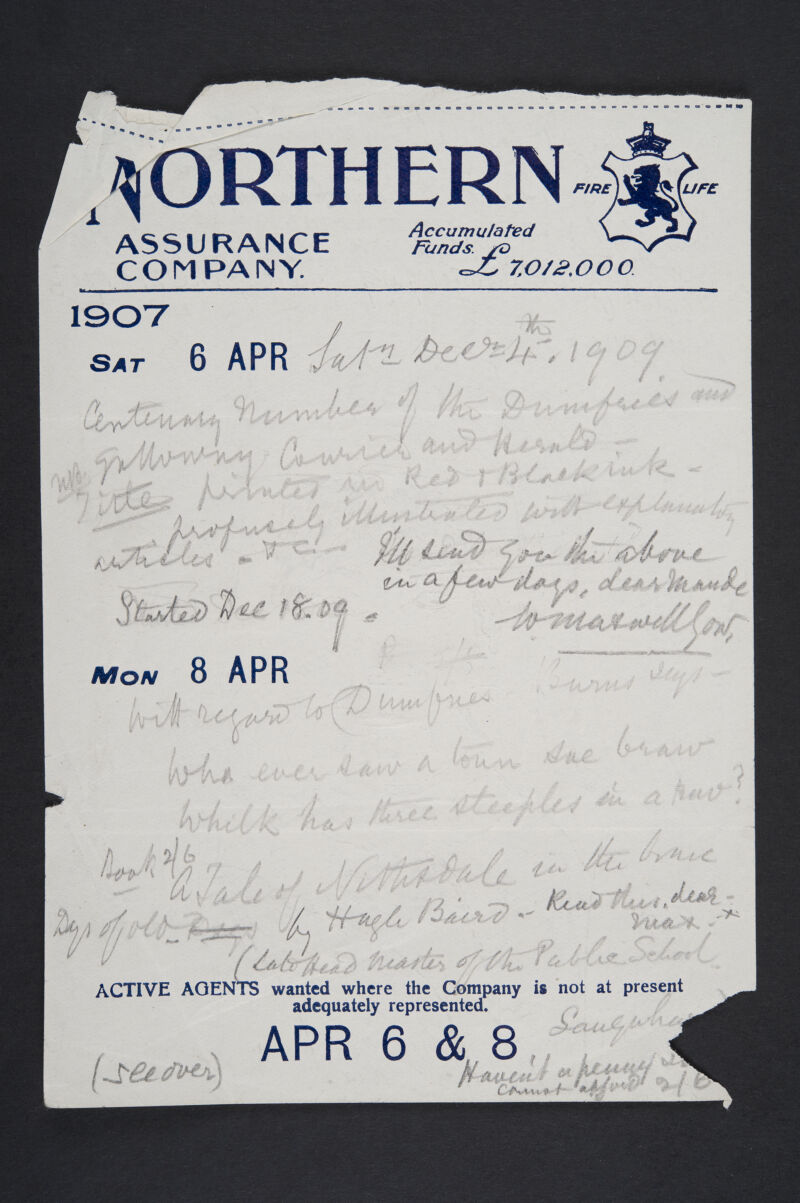 NORTHERN
FIRE LIFE
ASSURANCE
COMPANY.
Accumulated
Funds.
£7,012,000.
1907
SAT 6 APR Satn Decr 4th, 1909
Centenary Number of the Dumfries and
Galloway Courier and Herald -
Title printed in Red & Black ink -
profusely illustrated with explanatory
articles - &c -
I'll send you the above
in a few days, dear Maude
Started Dec 18.09 -
W Maxwell
MON 8 APR
With regard to Dumfries Burns says -
Wha ever saw a toun sae braw
Whilk has three steeples in a raw?
Book 2/6
A Tale of Nithsdale in the brave
Days of old - Days by Hugh Baird - Read this, dear -
Max - x
(Late Head Master of the Public School
ACTIVE AGENTS wanted where the Company is not at present
adequately represented.
APR 6 & 8
(see over)
Haven't a penny
cannot afford 2/6